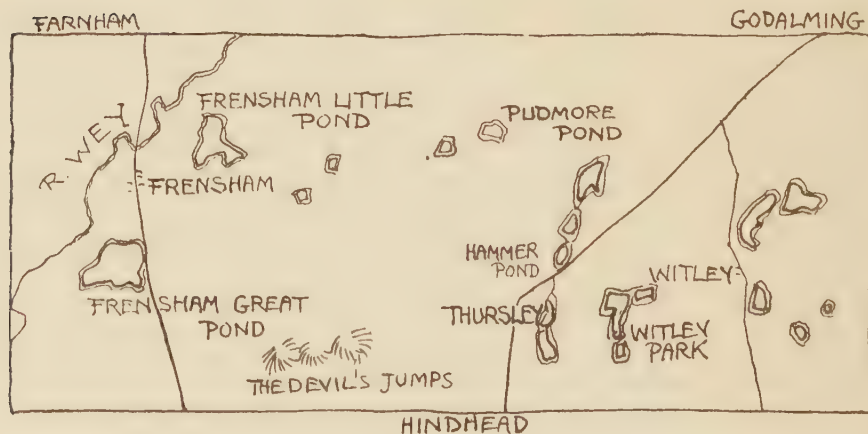 FARNHAM
GODALMING
R. WEY
FRENSHAM LITTLE
POND
PUDMORE
POND
FRENSHAM
HAMMER
POND
WITLEY
FRENSHAM GREAT
POND
THURSLEY
WITLEY
PARK
THE DEVIL'S JUMPS
HINDHEAD